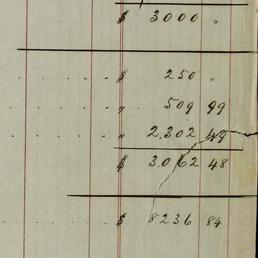 $ 3000 "
$ 250 "
" 509 99
" 2,302 49
$ 3,062 48
$ 8236 84